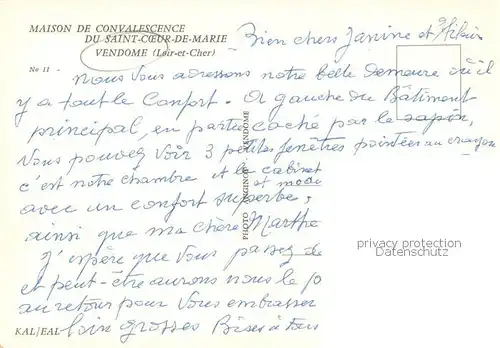 MAISON DE CONVALESCENCE
DU SAINT-CŒUR-DE-MARIE
VENDOME (Loir-et-Cher)
Bien chers Janine et
No 11
nous vous adressons notre belle demeure où il
y a tout le Confort. A gauche du Bâtiment
principal, en partie caché par le sapin,
Vous pouvez voir 3 petites fenêtres pointées au crayon
c'est notre chambre et le cabinet
avec un confort superbe, et
ainsi que ma chère Marthe
J'espère que vous passez de
et peut-être aurons nous le
au retour pour vous embrasser
loin grosses Bises à tous
PHOTO VENDOME
privacy protection
Datenschutz
KAL/EAL